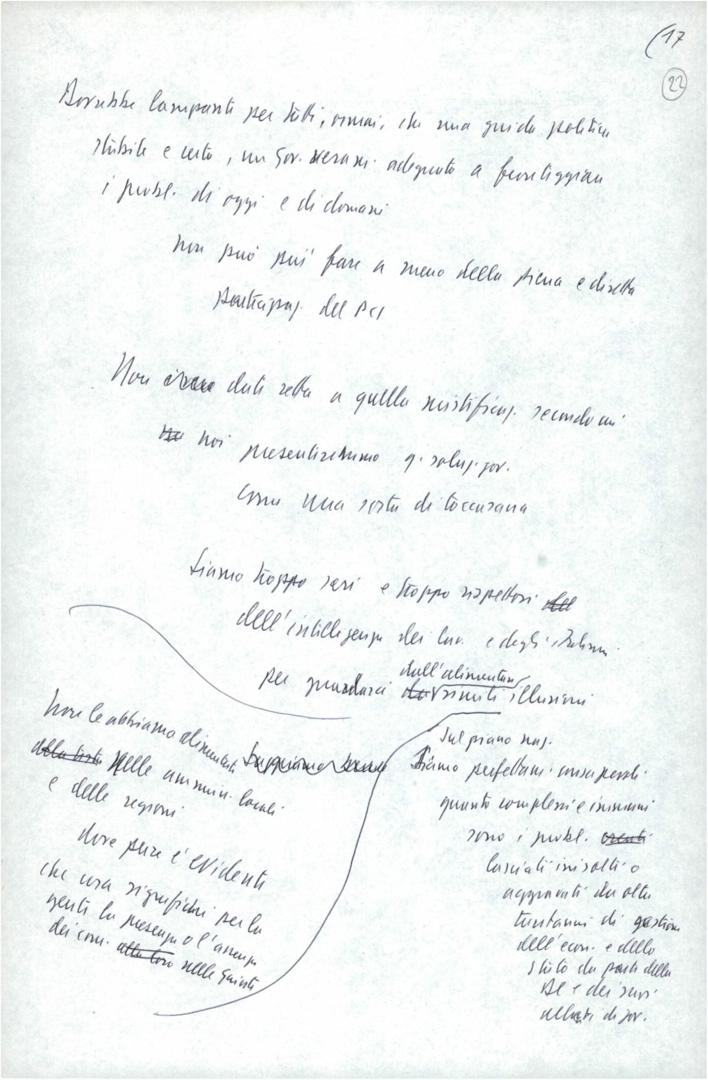 (17
22
lampante per tutti, ormai, che una guida politica
stabile e certa, un gov. veram. adeguato a fronteggiare
i probl. di oggi e di domani
non può più fare a meno della piena e diretta
partecipaz. del PCI
Non date retta a quella mistificaz. secondo cui
noi presenteremmo q. soluz. gov.
come una sorta di toccasana
Siamo troppo seri e troppo rispettosi
dell'intelligenza dei lav. e degli italiani
per guardarci dall'alimentare
simili illusioni
Non le abbiamo alimentate
nelle ammin. locali
e delle regioni
dove pure è evidente
che cosa significhi per la
gente la presenza o l'assenza
dei com. nelle giunte
Sul piano naz.
Siamo perfettam. consapevoli
quanto complessi e immani
sono i probl.
lasciati irrisolti o
aggravati da oltre
trentanni di gestione
dell'econ. e dello
stato da parte della
DC e dei suoi
alleati di gov.